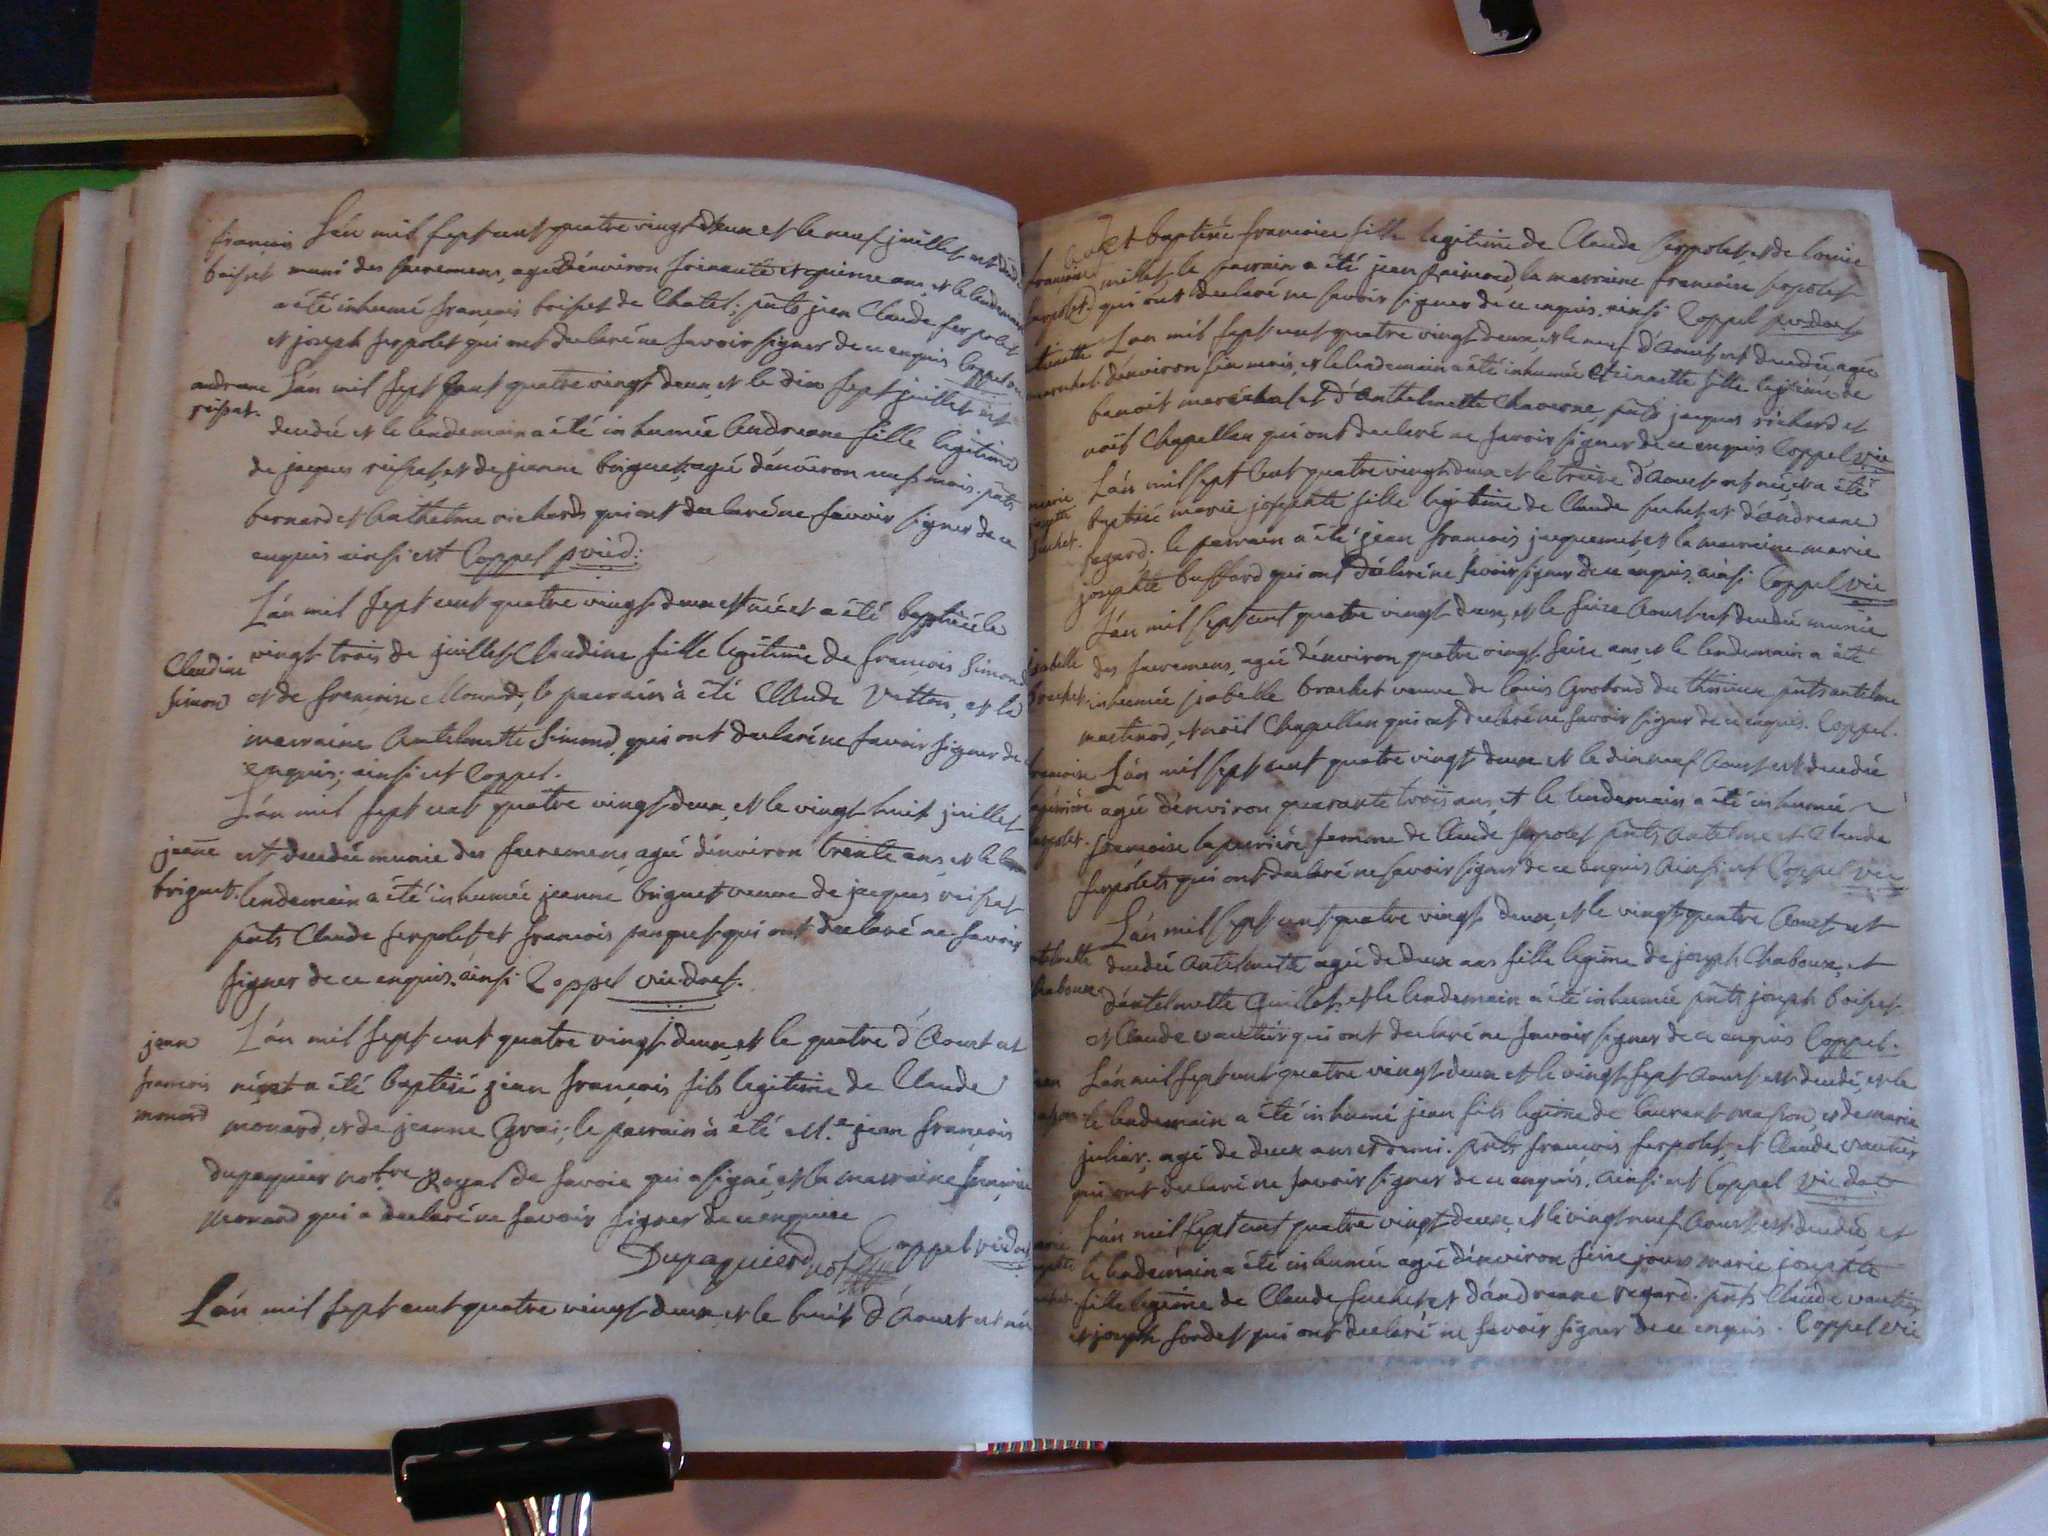 françois
boisset
L'án mil sept cent quatre vingt deux et le neuf juillet est
muni des sacremens, agé d'énviron soixante et quinse ans, et le lendemain
a été inhumé françois boisset de Chatel; pñts jean Claude serpolet
et joseph serpolet qui ont declaré ne savoir signer de ce enquis Coppel
andreane
reissat.
L'án mil sept cent quatre vingt deux, et le dix sept juillet est
decedé et le lendemain a été inhumée Andreane fille legitime
de jacques reissat, et de jeanne briguet, agé d'énviron neuf mois. pñts
bernard et Anthelme richards qui ont declaré ne savoir signer de ce
enquis ainsi est Coppel
Claudine
Simond
L'án mil sept cent quatre vingt deux est née et a été baptisée le
vingt trois de juillet Claudine fille legitime de françois Simond
et de françoise Monard, le parrain à été Claude Vetton, et la
marraine Antelmette Simond, qui ont declaré ne savoir signer de
enquis; ainsi est Coppel.
jeañe
briguet.
L'án mil sept cent quatre vingt deux, et le vingt huit juillet
est decedé munie des sacremens agé d'énviron trente ans et le
lendemain a été inhumée jeanne briguet veuve de jacques reissat
pñts Claude serpolet et françois pasquet qui ont declaré ne savoir
signer de ce enquis. ainsi Coppel
jean
françois
monard
L'án mil sept cent quatre vingt deux, et le quatre d'Aoust est
né et a été baptisé jean françois fils legitime de Claude
monard, et de jeanne; le parrain à été M.e jean françois
dupaquier not.re Royal de savoie qui a signé et la marraine françoise
Monard qui a declaré ne savoir signer de ce enquise
Dupaquier not. Coppel
L'án mil sept cent quatre vingt deux, et le huit d'Aoust est née
françoise
serpolet.
et baptisée françoise fille legitime de Claude serpolet, et de louise
millet, le parrain a été jean raimond, la marraine françoise serpolet
qui ont declaré ne savoir signer de ce enquis. ainsi Coppel
L'an mil sept cent quatre vingt deux, et le neuf d'Aoust est decedée agée
d'énviron six mois, et le lendemain a été inhumée Etiennette fille legitime de
benoit maréchal et d'Anthelmette Chaverne, pñts jacques richard et
noël Chapellan qui ont declaré ne savoir signer de ce enquis Coppel vic
marie
josephte
suchet.
L'án mil sept cent quatre vingt deux et le treise d'Aoust est née, et a été
baptisée marie josephte fille legitime de Claude suchet, et d'andreane
regard. le parrain a été jean françois jacquemet, et la marraine marie
josephte buffard qui ont déclaré ne savoir signer de ce enquis, ainsi Coppel vic
isabelle
brachet
L'án mil sept cent quatre vingt deux, et le seise Aoust est decedé munie
des sacremens, agé d'énviron quatre vingt seise ans, et le lendemain a été
inhumée isabelle brachet veuve de louis Grobond du pñts antelme
martinod, et noël Chapellan qui ont declaré ne savoir signer de ce enquis. Coppel.
L'án mil sept cent quatre vingt deux et le dixneuf Aoust est decedée
agé d'énviron quarante trois ans, et le lendemain a été inhumée
françoise laperriére femme de Claude serpolet pñts Antelme et Claude
serpolets qui ont declaré ne savoir signer de ce enquis Ainsi est Coppel vic
antelmette
Chaboux
L'án mil sept cent quatre vingt deux, et le vingt quatre Aoust est
decedé Antelmette agé de deux ans fille legime de joseph Chaboux, et
d'antelmette Quillet: et le lendemain a été inhumée pñts joseph boisset
et Claude vautier qui ont declaré ne savoir signer de ce enquis Coppel.
L'án mil sept cent quatre vingt deux et le vingt sept Aoust est decedé, et le
le lendemain a été inhumé jean fils legime de laurent masson, et de marie
julliar; agé de deux ans et demi. pñts françois serpolet, et Claude vautier
qui ont declaré ne savoir signer de ce enquis. Ainsi est Coppel
L'án mil sept cent quatre vingt deux, et le vingt neuf Aoust est decedé et
le lendemain a été inhumée agé d'énviron seise jours marie josephte
fille legime de Claude suchet et d'ándreane regard. pñts Claude vautier
et joseph sordet qui ont declaré ne savoir signer de ce enquis. Coppel vic